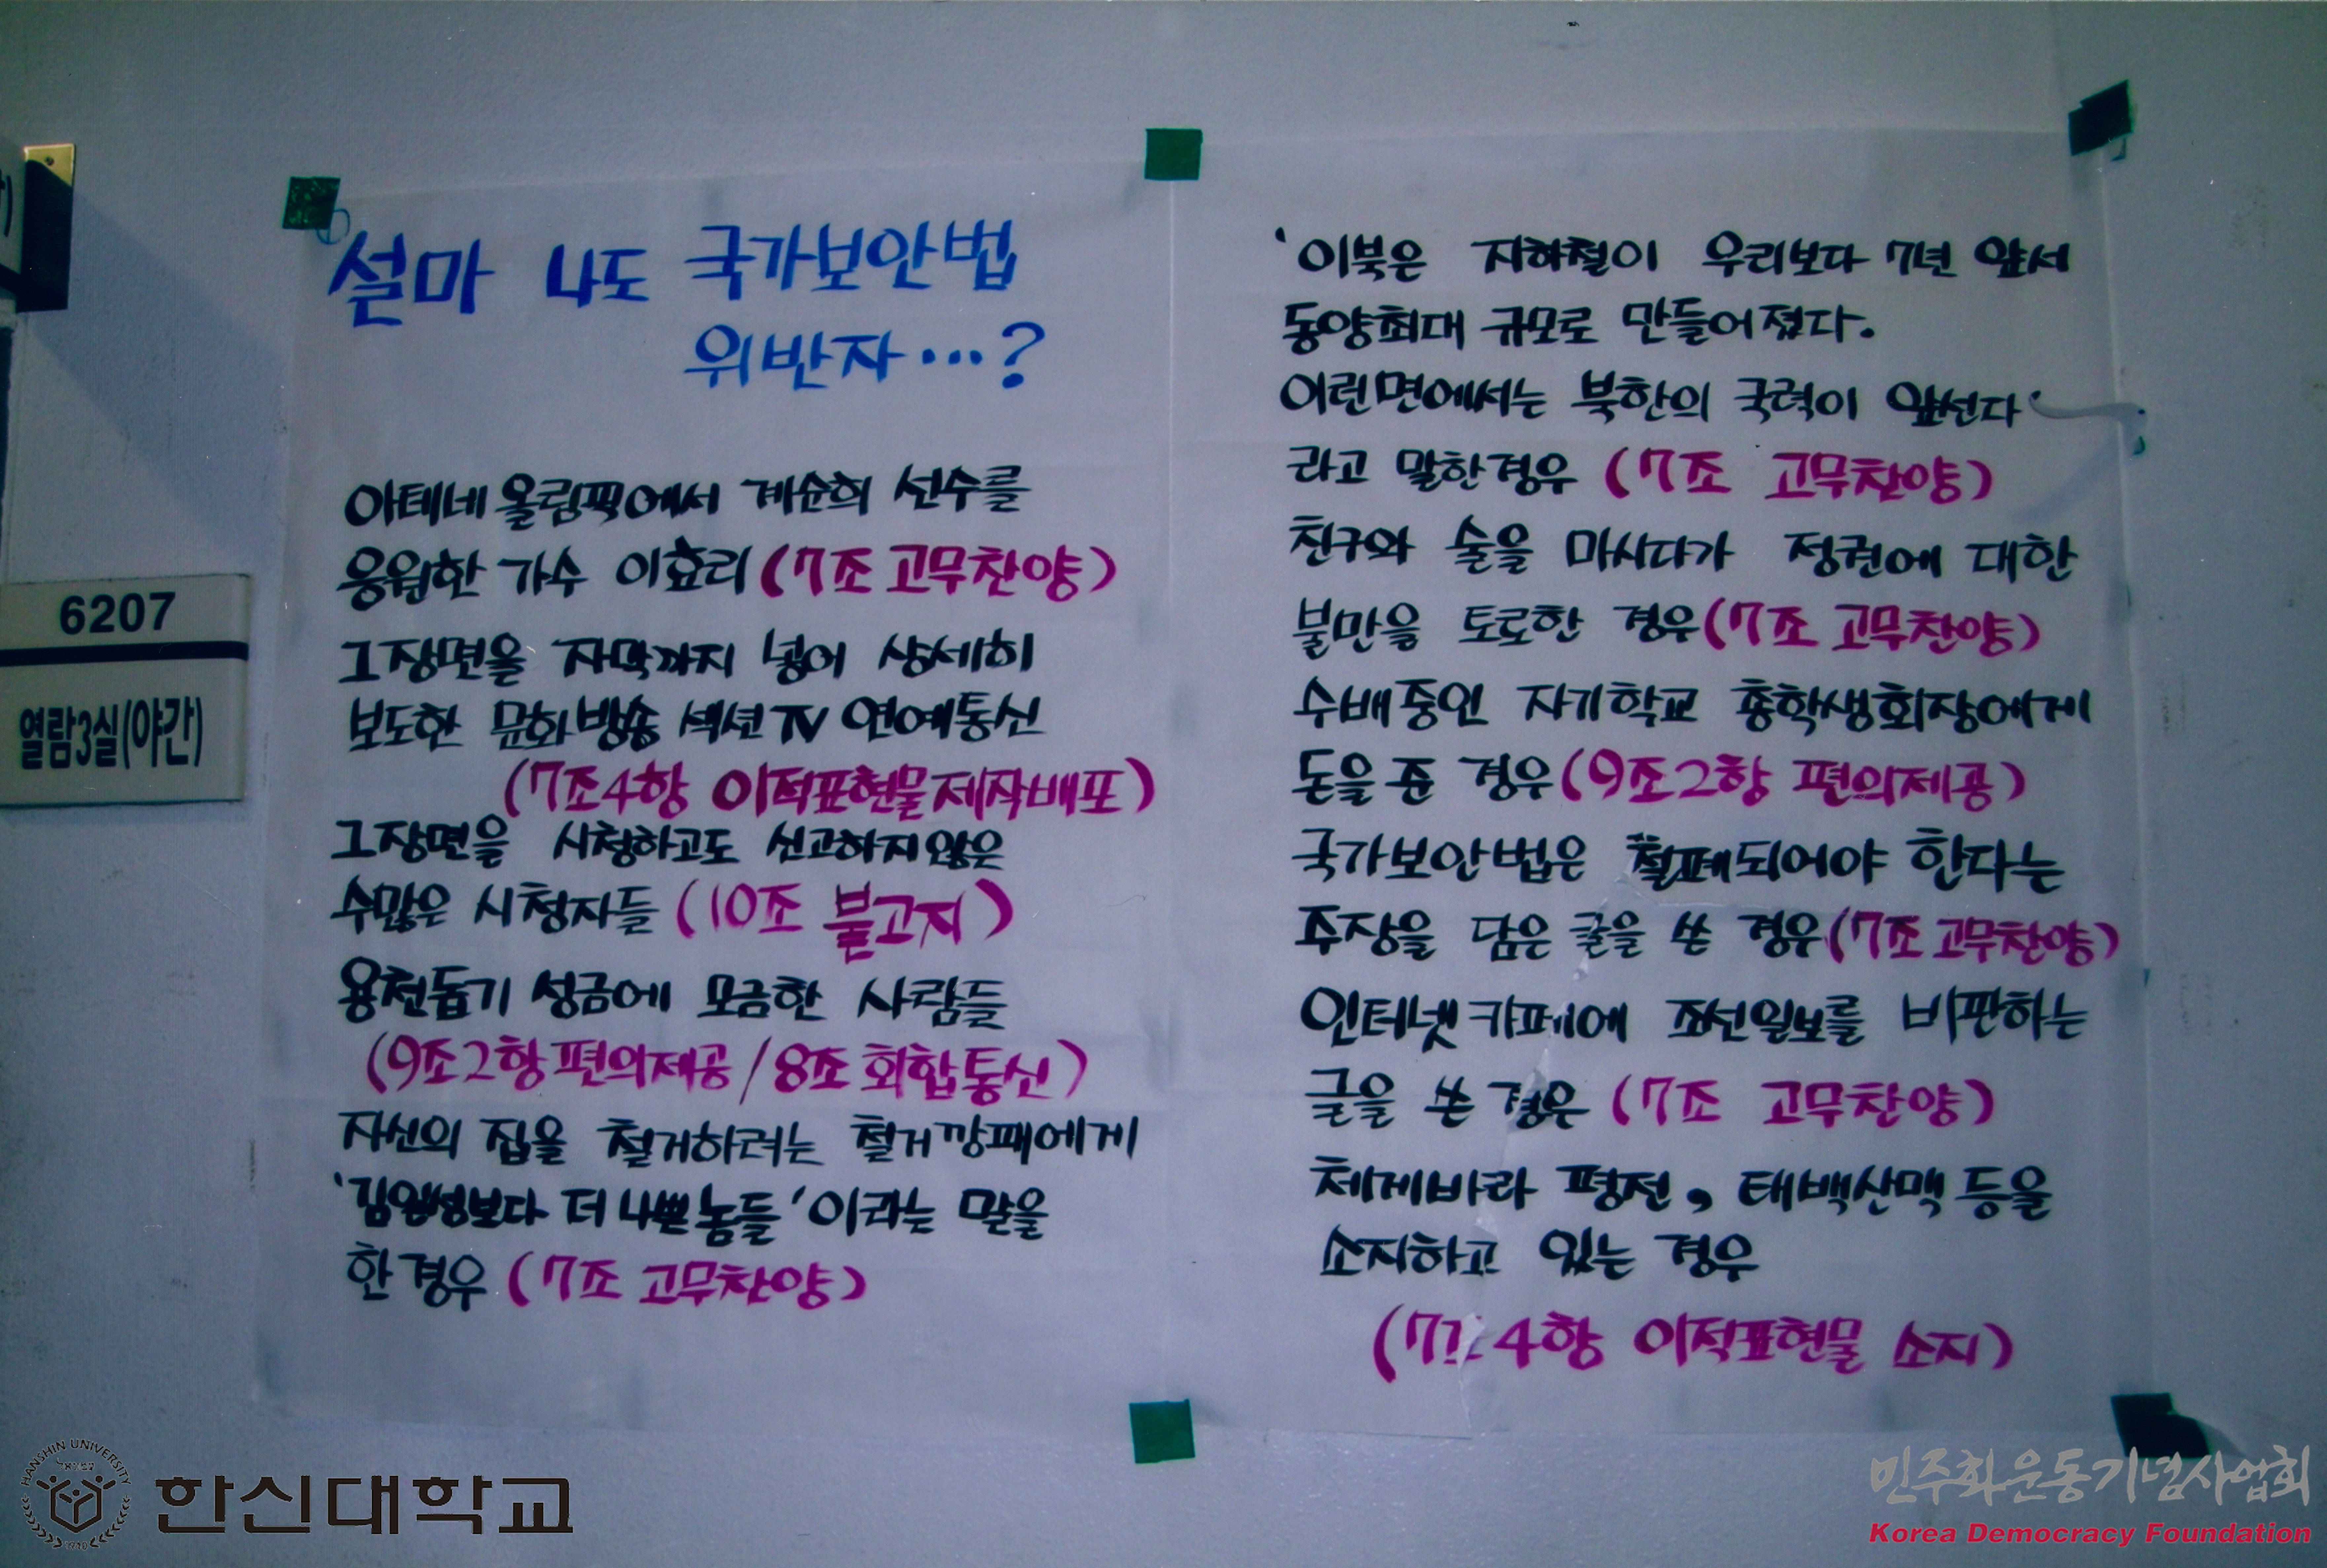 설마 나도 국가보안법
위반자...?
아테네 올림픽에서 계순희 선수를
응원한 가수 이효리 (7조 고무찬양)
그장면을 자막까지 넣어 상세히
보도한 문화방송 섹션TV 연예통신
(7조4항 이적표현물제작배포)
그장면을 시청하고도 신고하지않은
수많은 시청자들 (10조 불고지)
용천돕기 성금에 모금한 사람들
(9조2항 편의제공/8조 회합통신)
자신의 집을 철거하려는 철거깡패에게
'김일성보다 더 나쁜놈들'이라는 말을
한 경우 (7조 고무찬양)
'이북은 지하철이 우리보다 7년 앞서
동양최대 규모로 만들어졌다.
이런면에서는 북한의 국력이 앞선다'
라고 말한경우 (7조 고무찬양)
친구와 술을 마시다가 정권에 대한
불만을 토로한 경우(7조 고무찬양)
수배중인 자기학교 총학생회장에게
돈을 준 경우(9조2항 편의제공)
국가보안법은 철폐되어야 한다는
주장을 담은 글을 쓴 경우(7조 고무찬양)
인터넷 카페에 조선일보를 비판하는
글을 쓴 경우 (7조 고무찬양)
체게바라 평전, 태백산맥 등을
소지하고 있는 경우
4항 이적표현물 소지)
6207
열람3실(야간)
HANSHIN UNIVERSITY
한신대학교
민주화운동기념사업회
Korea Democracy Foundation